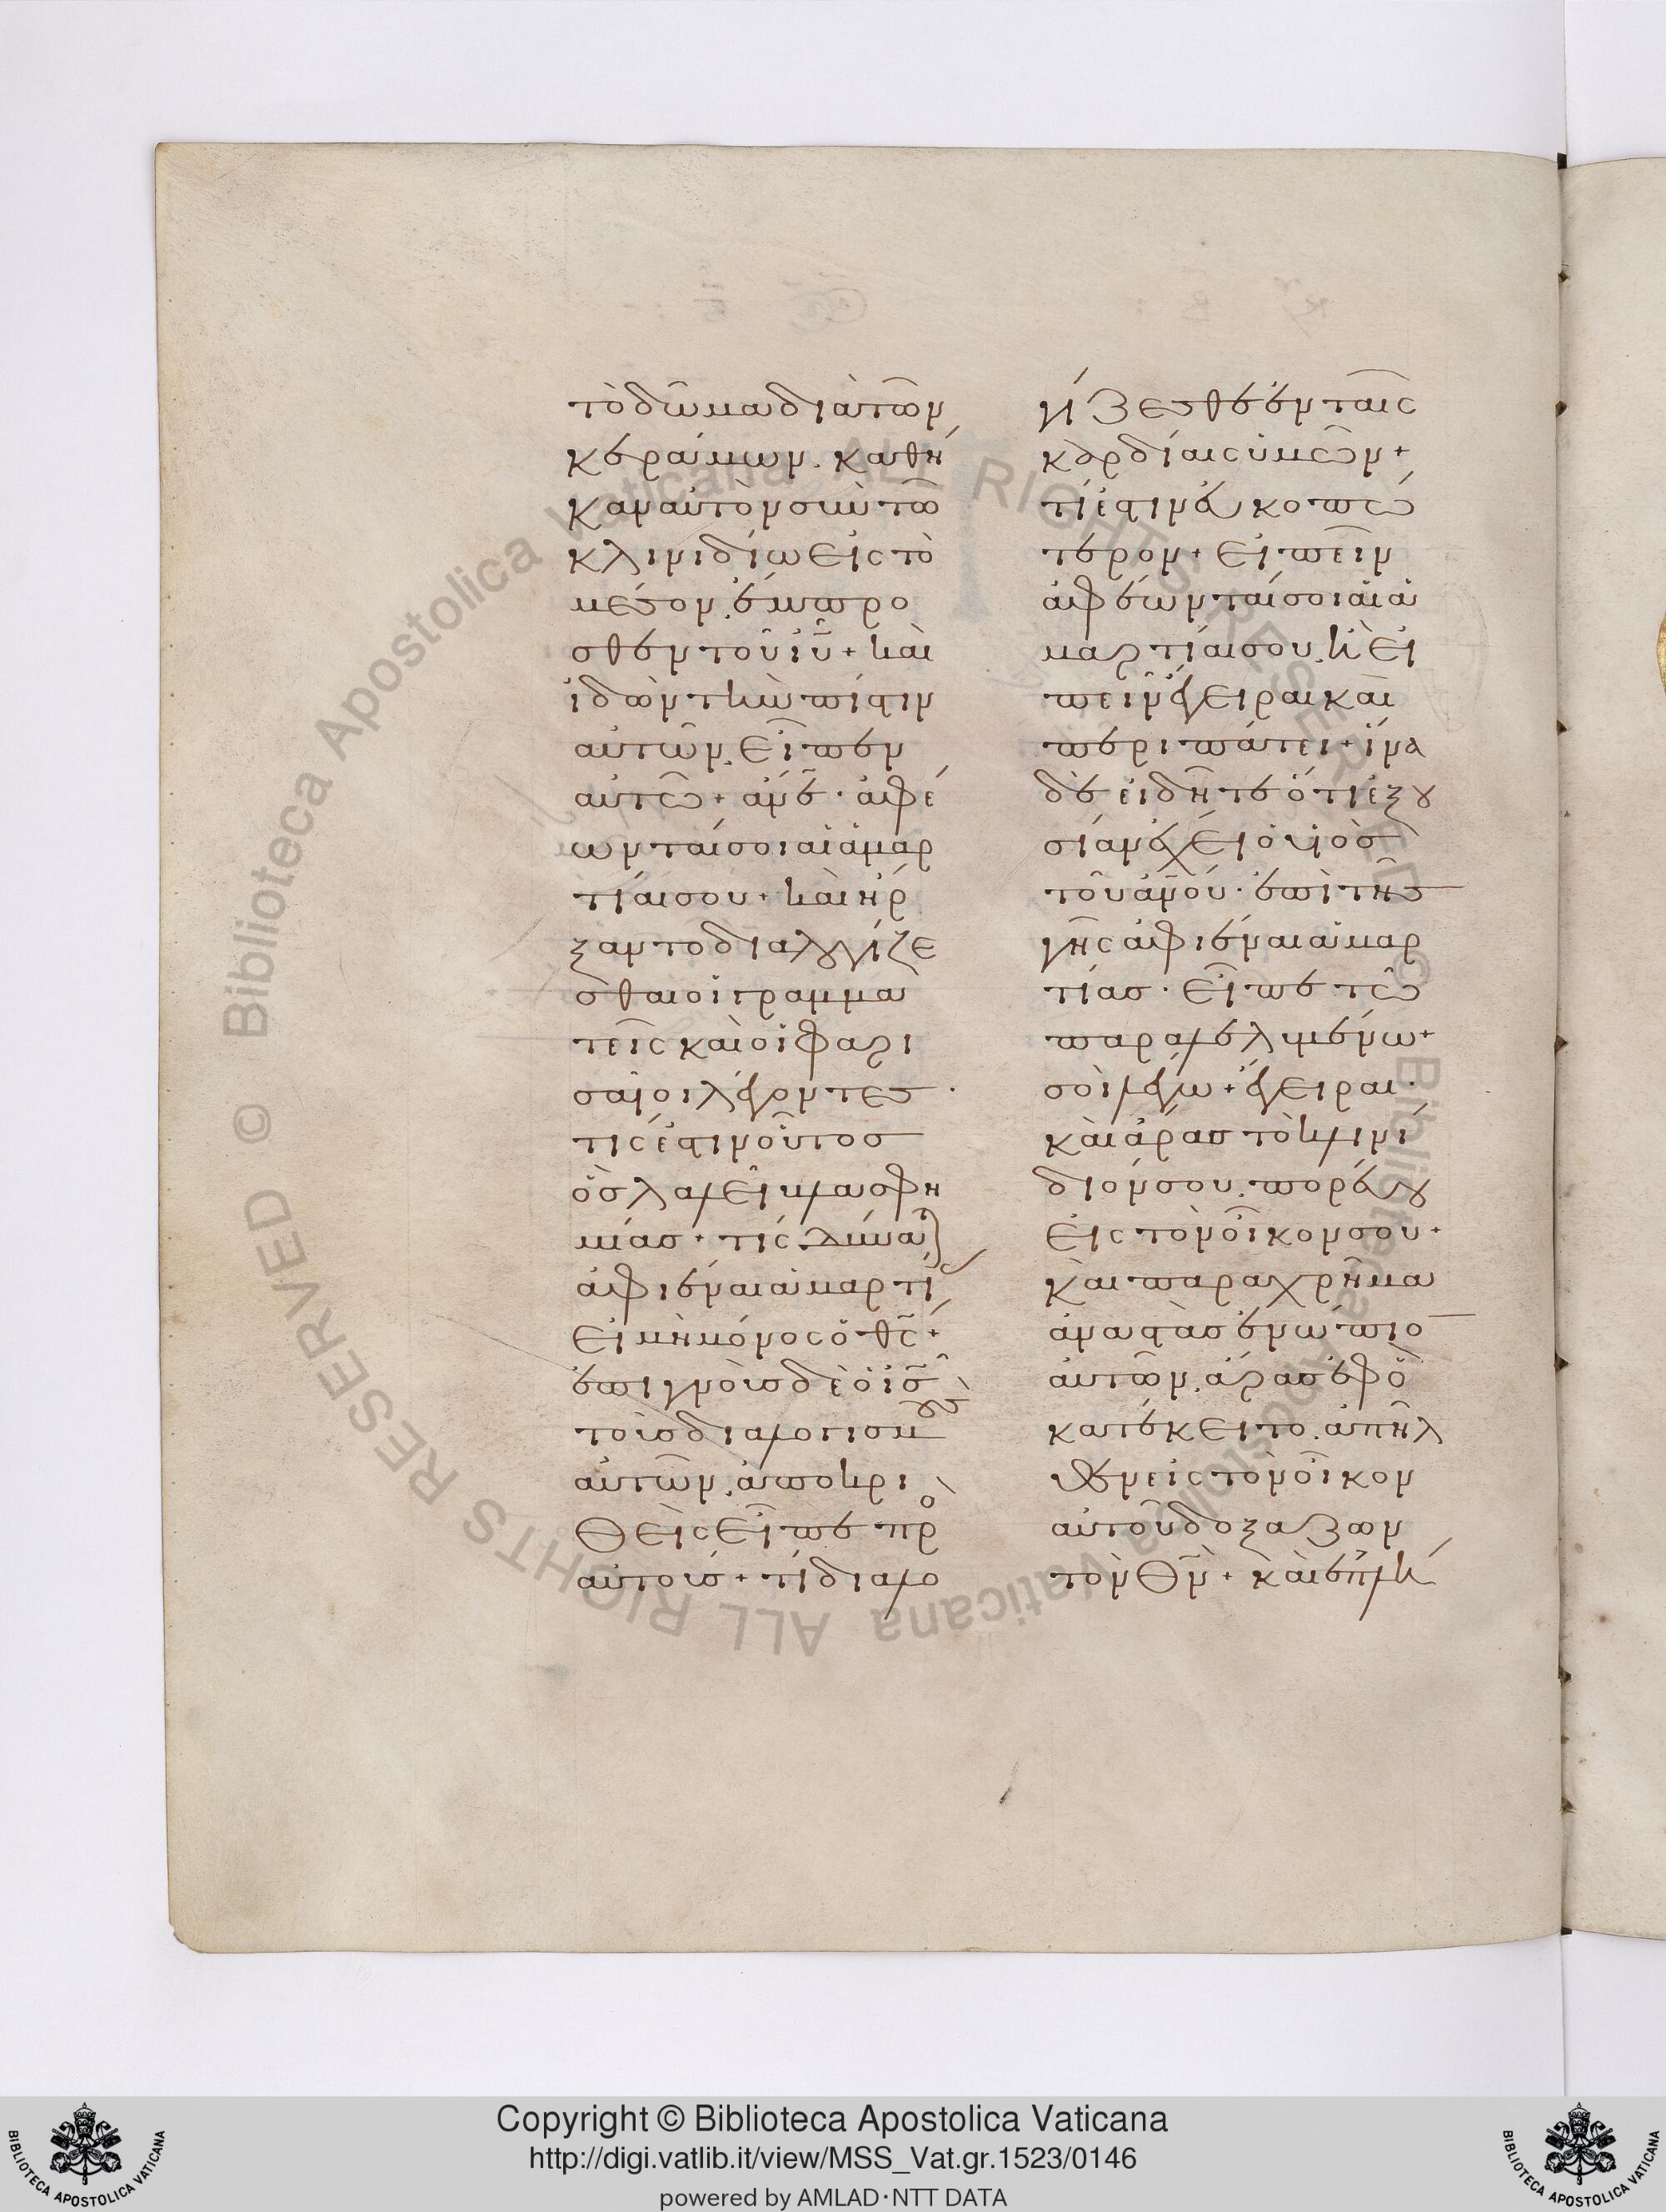 τὸ δῶμα διὰ τῶν
κεράμων. καθῆ
καν αὐτὸν σὺν τῶ
κλινιδίω εἰς τὸ
μέσον. ἔμπρο
σθεν τοῦ ἰῦ + καὶ
ἰδὼν τὴν πίστιν
αὐτῶν. εἶπεν
αὐτῶ + ἄνε · ἀφέ
ωνταί σοι αἱ ἁμαρ
τίαι σου + καὶ ἤρ
ξαντο διαλογίζε
σθαι οἱ γραμμα
τεῖς καὶ οἱ φαρι
σαῖοι λέγοντες ·
τίς ἐστιν οὗτος
ὃς λαλεῖ βλασφη
μίας + τίς δύναται
ἀφιέναι ἁμαρτί
εἰ μὴ μόνος ὁ θς +
ἐπιγνοὺς δὲ ὁ ις
τοὺς διαλογισμοὺς
αὐτῶν. ἀποκρι
θεὶς εἶπε πρὸ
αὐτούς + τί διαλο
γίζεσθε ἐν ταῖς
καρδίαις ὑμῶν +
τί ἐστιν εὐκοπώ
τερον + εἰπεῖν
ἀφέωνταί σοι αἱ ἁ
μαρτίαι σου. ἢ εἰ
πεῖν ἔγειραι καὶ
περιπάτει + ἵνα
δὲ εἰδῆτε ὅτι ἐξου
σίαν ἔχει ὁ υἱὸς
τοῦ ἀνου · ἐπὶ τῆς
γῆς ἀφιέναι ἁμαρ
τίας · εἶπε τῶ
παραλελυμένω +
σοὶ λέγω + ἔγειραι ·
καὶ ἄρας τὸ κλινί
διόν σου. πορεύου
εἰς τὸν οἶκον σου +
καὶ παραχρῆμα
ἀναστὰς ἐνώπιο
αὐτῶν. ἄρας ἐφ ὃ
κατέκειτο. ἀπῆλ
θεν εἰς τὸν οἶκον
αὐτοῦ δοξάζων
τὸν θν + καὶ ἐπλή
Copyright © Biblioteca Apostolica Vaticana
http://digi.vatlib.it/view/MSS_Vat.gr.1523/0146
powered by AMLAD·NTT DATA
BIBLIOTECA APOSTOLICA VATICANA
BIBLIOTECA APOSTOLICA VATICANA
© Biblioteca Apostolica Vaticana ALL RIGHTS RESERVED
© Biblioteca Apostolica Vaticana ALL RIGHTS RESERVED